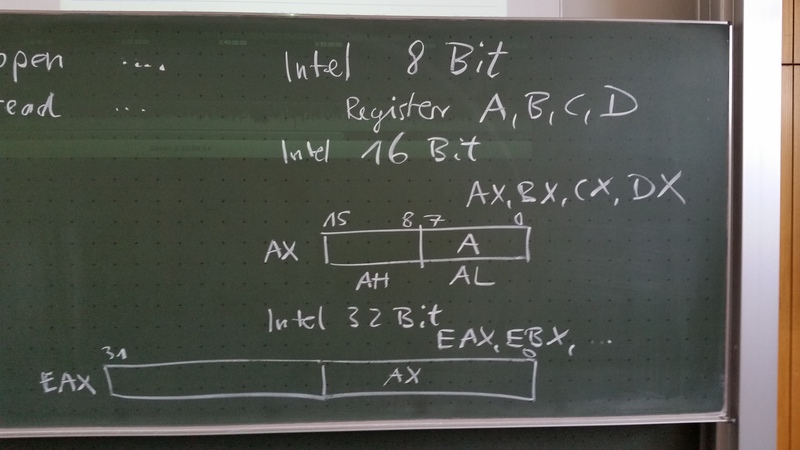 open ....
read ...
Intel 8 Bit
Register A, B, C, D
Intel 16 Bit
AX, BX, CX, DX
15 8 7 0
AX A
AH AL
Intel 32 Bit
EAX, EBX, ...
31 0
EAX AX